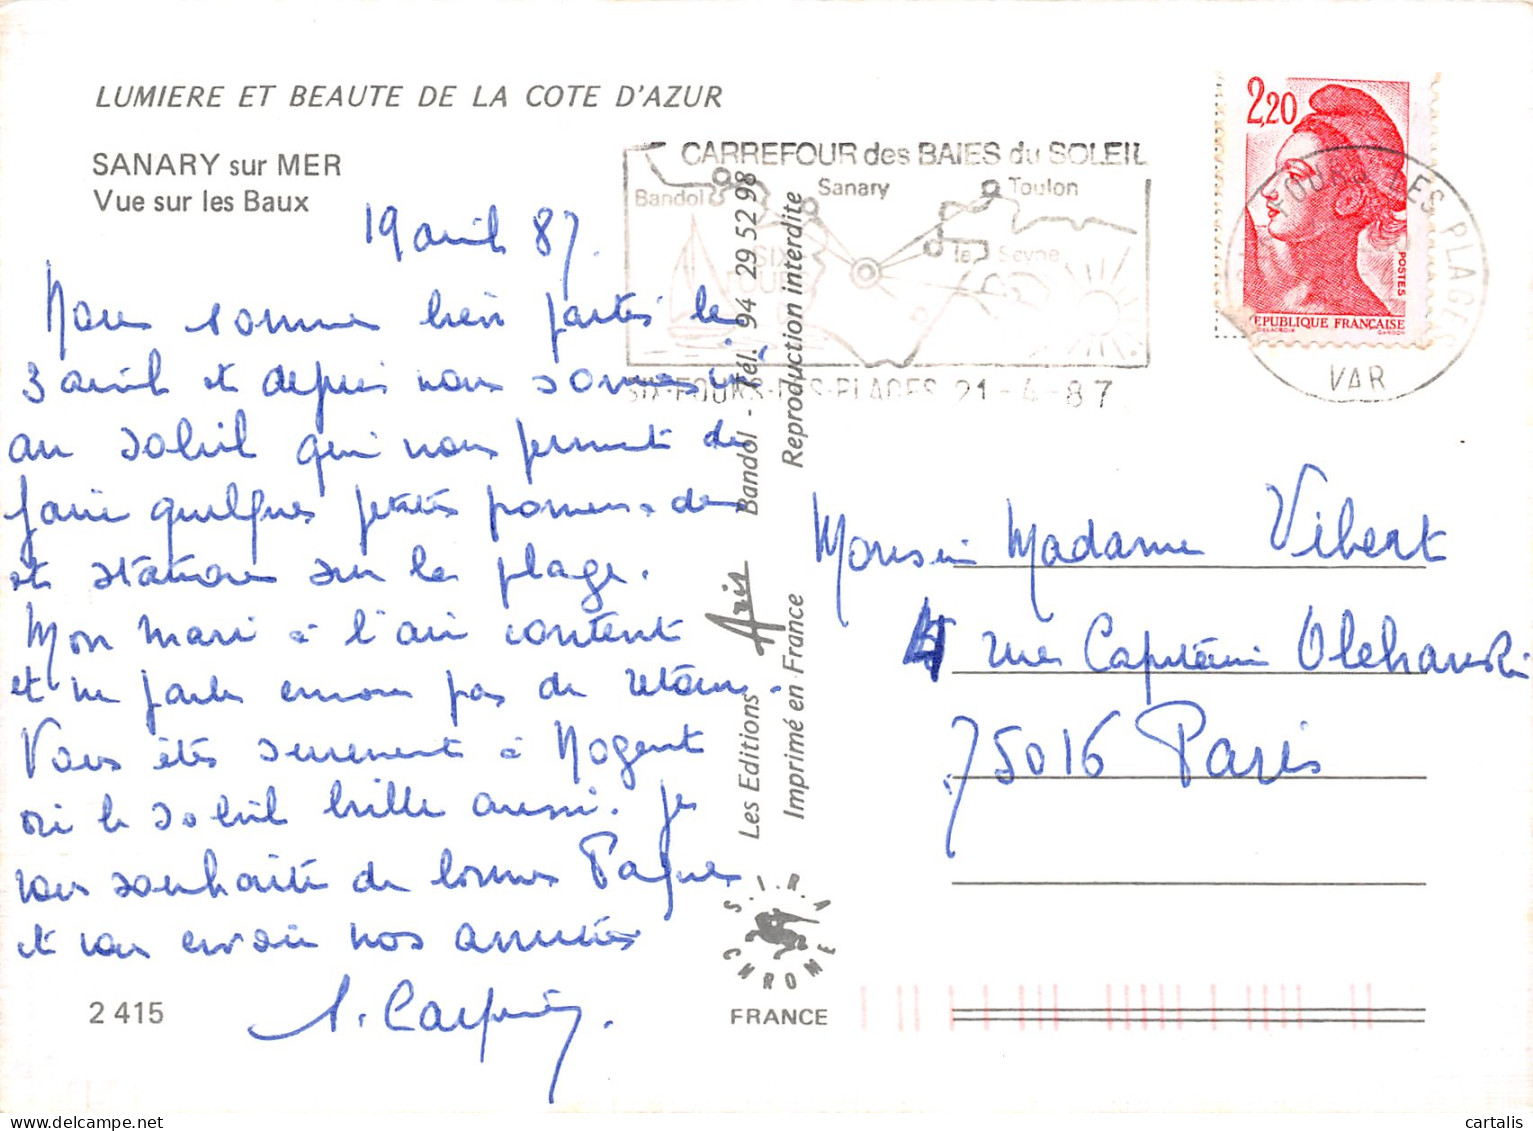 LUMIERE ET BEAUTE DE LA COTE D'AZUR
SANARY sur MER
Vue sur les Baux
19 avril 87.
Nous sommes bien partis le
3 avril et depuis nous sommes ici
au soleil qui nous permet de
faire quelques petites promenades
et stations sur la plage.
Mon mari à l'air content
et ne parle encore pas de retour.
Vous êtes surement à Nogent
où le soleil brille aussi. Je
vous souhaite de bonnes Pâques
et vous envoie nos amitiés
2 415
CARREFOUR des BAIES du SOLEIL
Bandol
Sanary
Toulon
la Seyne
SIX
FOURS
SIX-FOURS-DES-PLAGES 21-4-87
FOURS DES PLAGES
VAR
2,20
POSTES
REPUBLIQUE FRANÇAISE
DELACROIX
GANDON
Les Editions Aris Bandol - Tél. 94 29 52 98
Imprimé en France Reproduction interdite
S.I.R.A.
CHROME
FRANCE
Monsieur Madame Vibert
4 rue Capitaine Olchanski
75016 Paris
cartalis